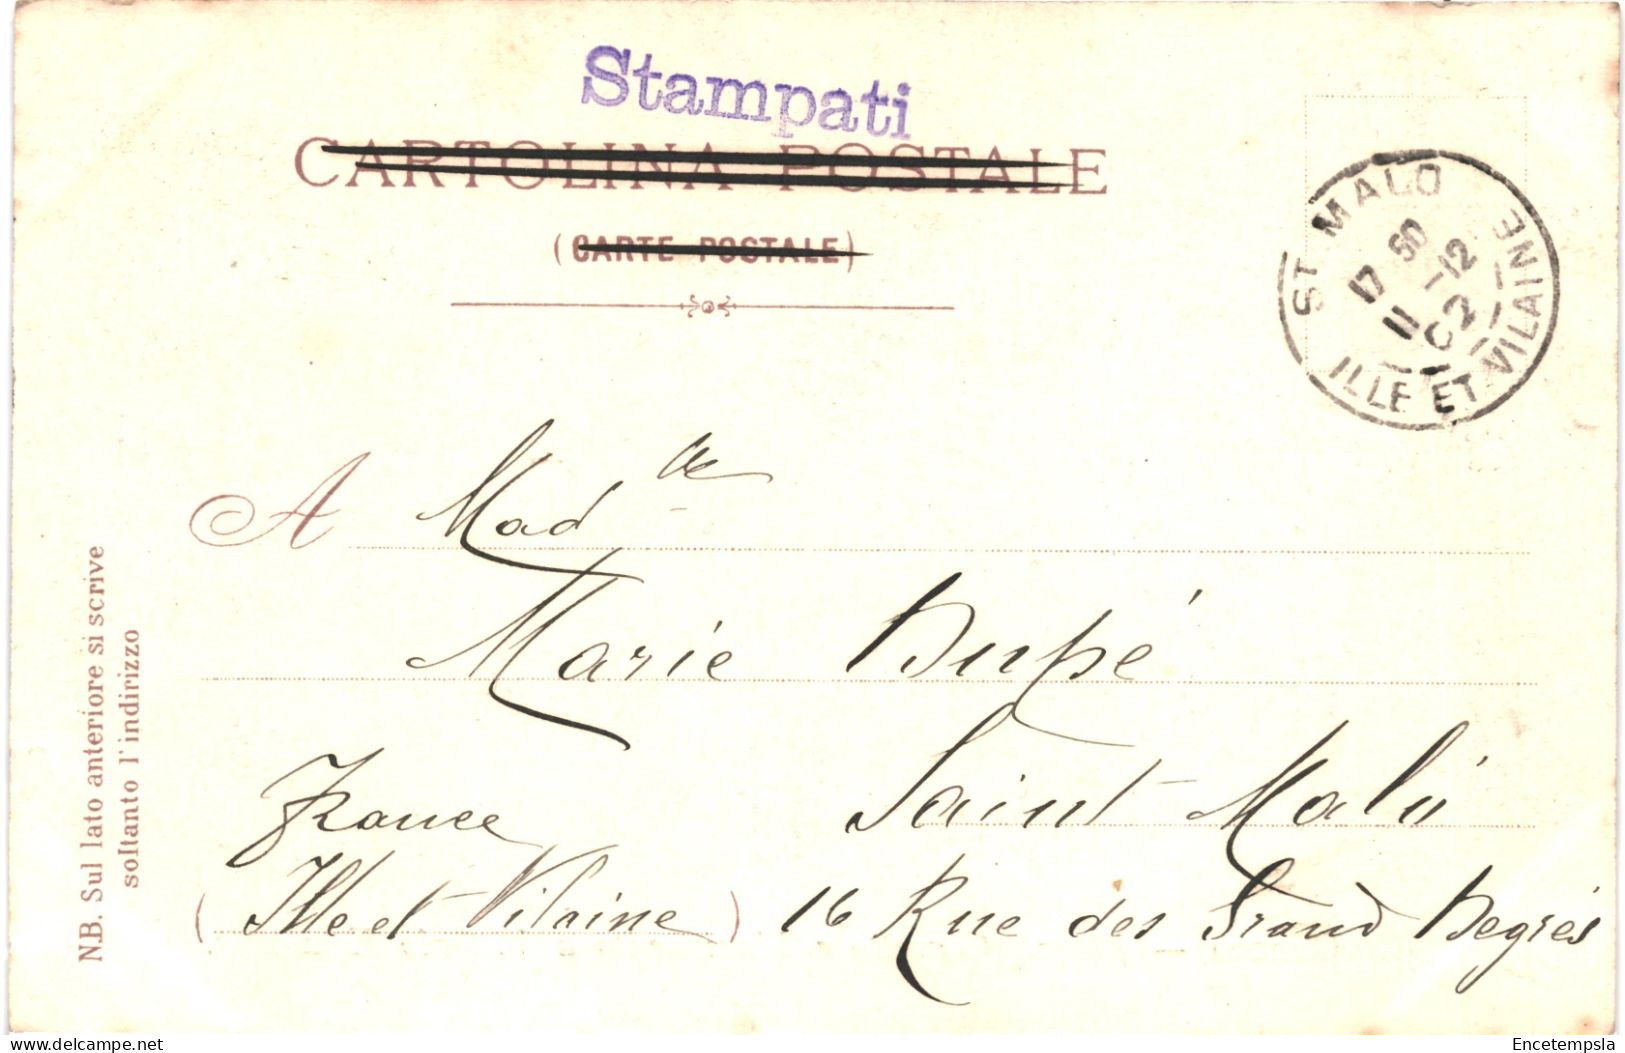 Stampati
CARTOLINA POSTALE
(CARTE POSTALE)
ST MALO
17 50
11 -12
02
ILLE ET VILAINE
A Mad lle
Marie Dupé
Saint Malo
France
(Ille et Vilaine) 16 Rue des Grand Degrés
N.B. Sul lato anteriore si scrive
soltanto l'indirizzo
delcampe.net
Encetempsla